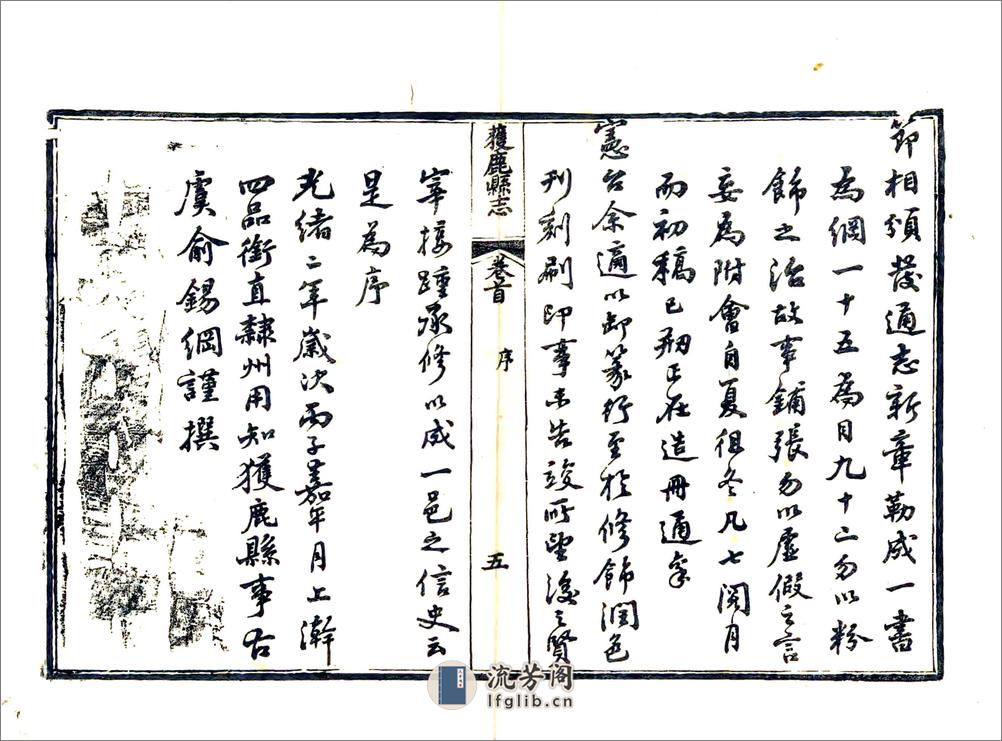 節相頒發通志新章勒成一書
為綱一十五為目九十二勿以粉
飾之治故事鋪張勿以虛假之言
妄為附會自夏徂冬凡七閱月
而初稿已剏正在造冊通
憲台余適以卸篆行至於修飾潤色
刊刻刷印事未告竣所望後之賢
獲鹿縣志
卷首
序
五
宰接踵承修以成一邑之信史云
是為序
光緒二年歲次丙子嘉平月上澣
四品銜直隸州用知獲鹿縣事古
虞俞錫綱謹撰
流芳阁
lfglib.cn